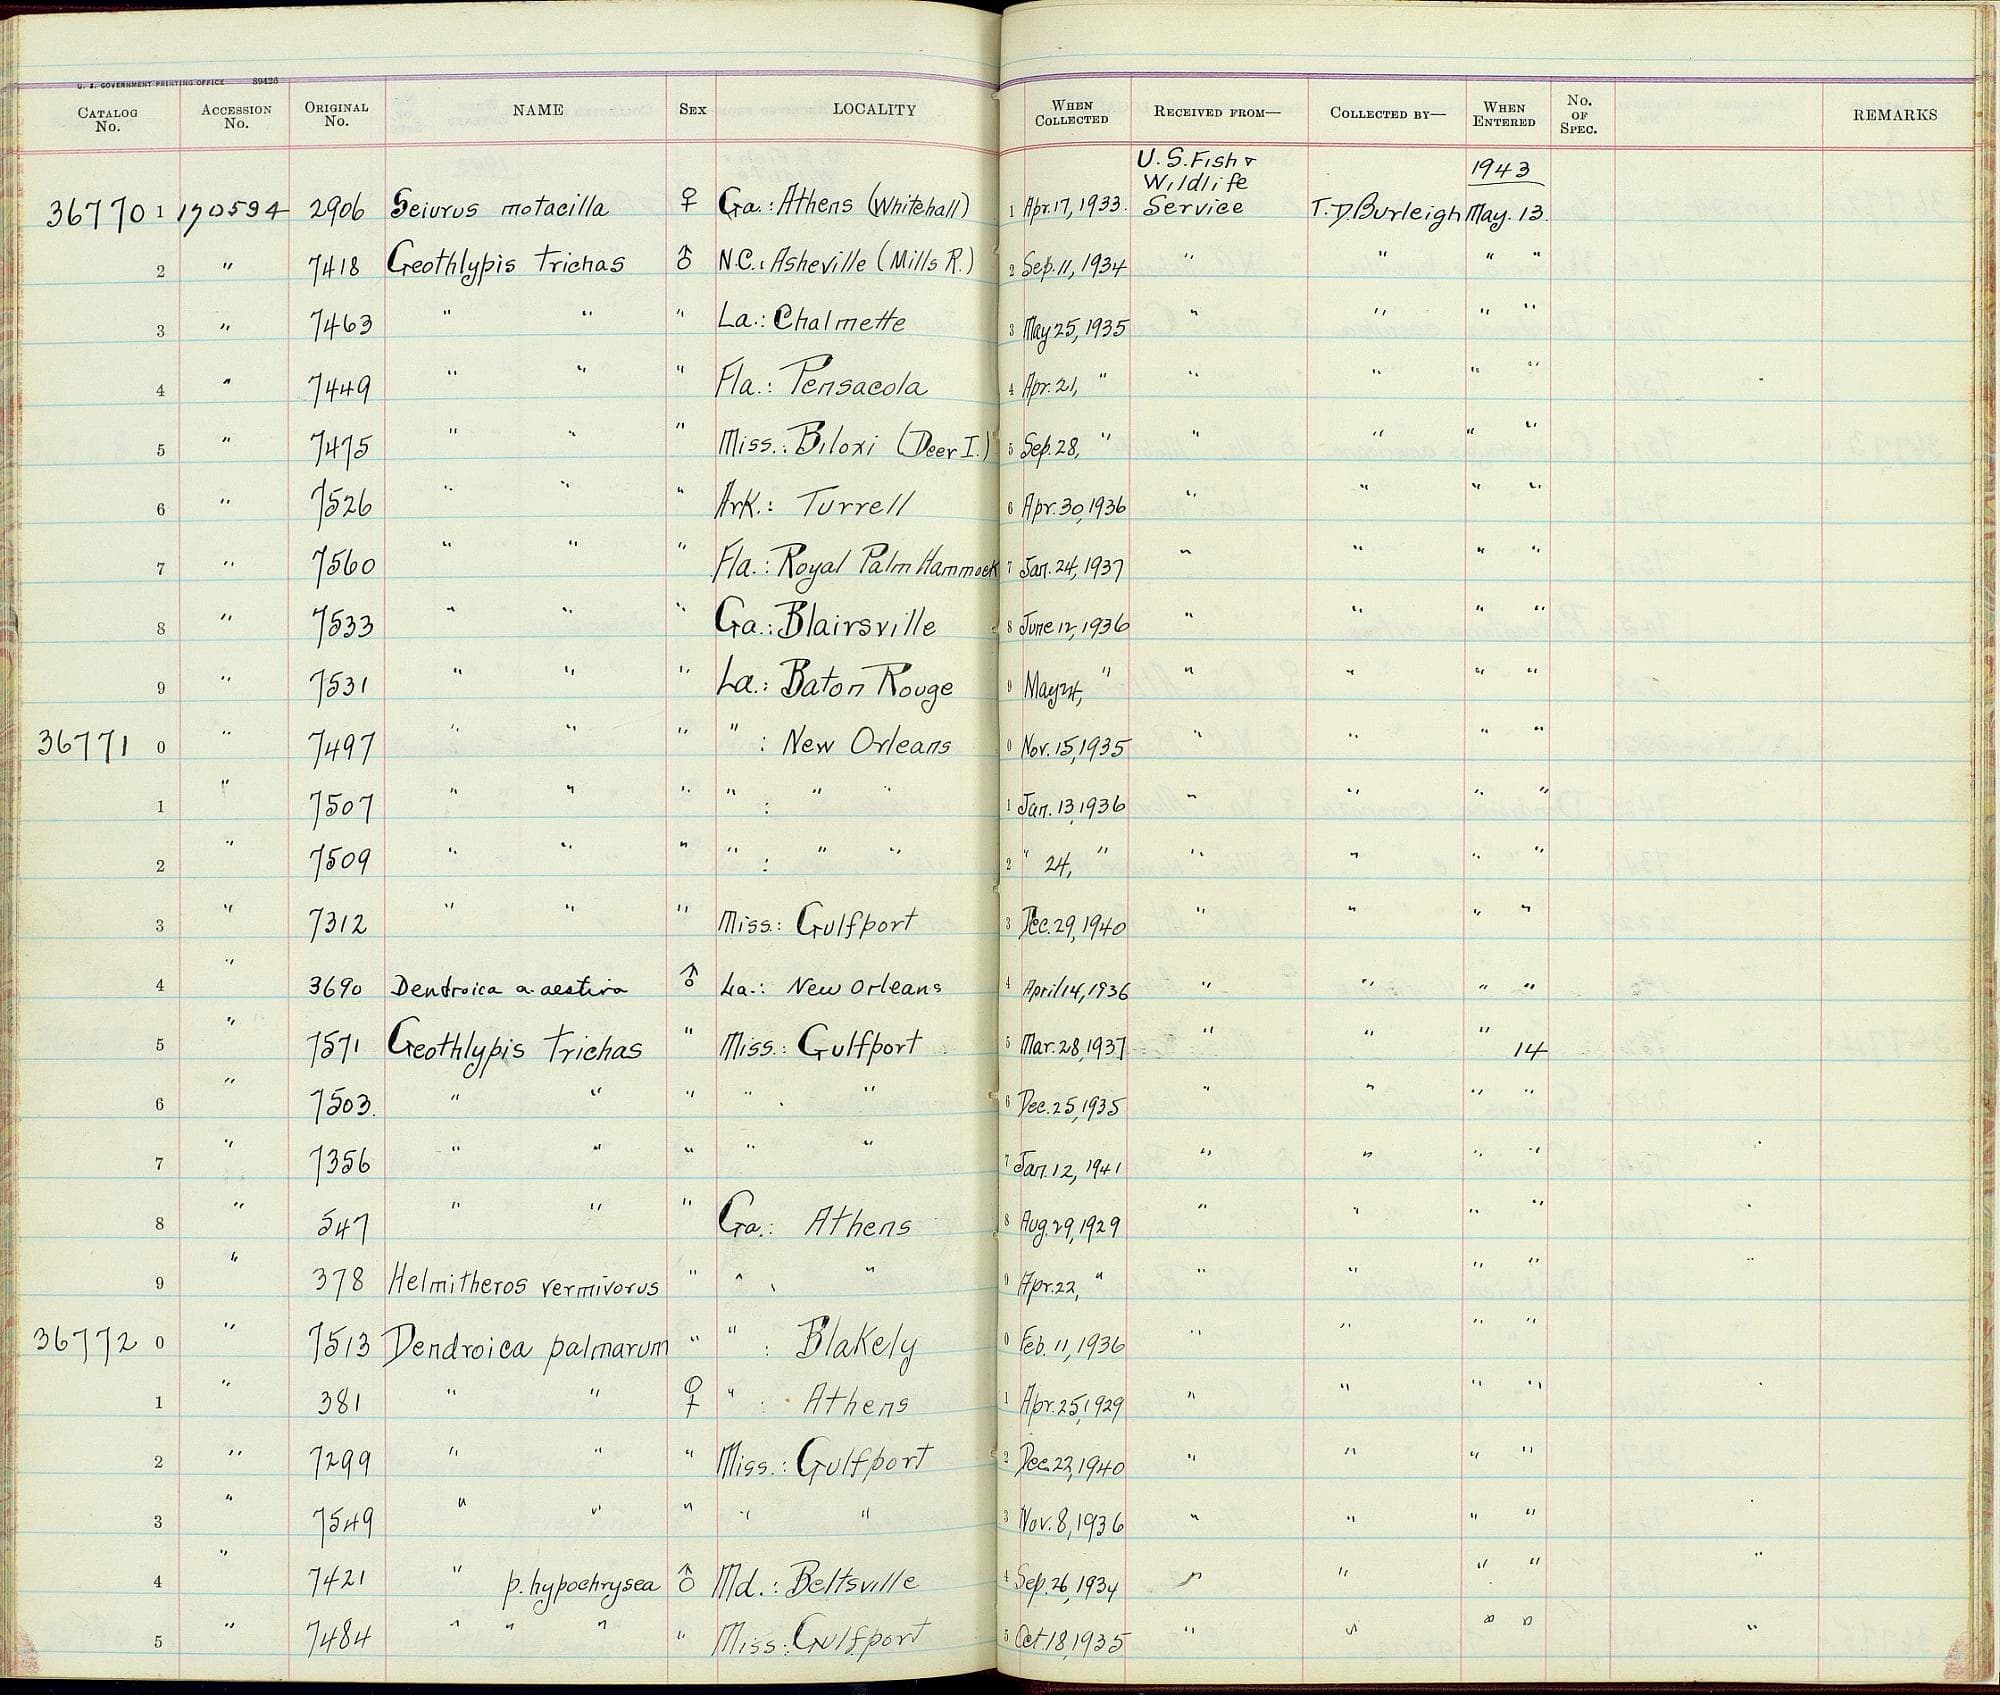 U. S. GOVERNMENT PRINTING OFFICE 89426
CATALOG No. ACCESSION No. ORIGINAL No. NAME SEX LOCALITY WHEN COLLECTED RECEIVED FROM— COLLECTED BY— WHEN ENTERED No. OF SPEC. REMARKS
U. S. Fish & Wildlife Service 1943
36770 1 170594 2906 Seiurus motacilla ♀ Ga.: Athens (Whitehall) 1 Apr. 17, 1933. T. D. Burleigh May. 13.
2 " 7418 Geothlypis trichas ♂ N.C.: Asheville (Mills R.) 2 Sep. 11, 1934 " " " "
3 " 7463 " " " La.: Chalmette 3 May 25, 1935 " " " "
4 " 7449 " " " Fla.: Pensacola 4 Apr. 21, " " " " "
5 " 7475 " " " Miss.: Biloxi (Deer I.) 5 Sep. 28, " " " " "
6 " 7526 " " " Ark.: Turrell 6 Apr. 30, 1936 " " " "
7 " 7560 " " " Fla.: Royal Palm Hammock 7 Jan. 24, 1937 " " " "
8 " 7533 " " " Ga.: Blairsville 8 June 12, 1936 " " " "
9 " 7531 " " " La.: Baton Rouge 9 May 24, " " " " "
36771 0 " 7497 " " " " : New Orleans 0 Nov. 15, 1935 " " " "
1 " 7507 " " " " : " " 1 Jan. 13, 1936 " " " "
2 " 7509 " " " " : " " 2 " 24, " " " " "
3 " 7312 " " " Miss.: Gulfport 3 Dec. 29, 1940 " " " "
4 " 3690 Dendroica a. aestiva ♂ La.: New Orleans 4 April 14, 1936 " " " "
5 " 7571 Geothlypis trichas " Miss.: Gulfport 5 Mar. 28, 1937 " " " 14
6 " 7503. " " " " " 6 Dec. 25, 1935 " " " "
7 " 7356 " " " " " 7 Jan. 12, 1941 " " " "
8 " 547 " " " Ga.: Athens 8 Aug. 29, 1929 " " " "
9 " 378 Helmitheros vermivorus " " " 9 Apr. 22, " " " " "
36772 0 " 7513 Dendroica palmarum " " : Blakely 0 Feb. 11, 1936 " " " "
1 " 381 " " ♀ " : Athens 1 Apr. 25, 1929 " " " "
2 " 7299 " " " Miss.: Gulfport 2 Dec. 22, 1940 " " " "
3 " 7549 " " " " " 3 Nov. 8, 1936 " " " "
4 " 7421 " p. hypochrysea ♂ Md.: Beltsville 4 Sep. 26, 1934 " " " "
5 " 7484 " " " " Miss.: Gulfport 5 Oct. 18, 1935 " " " "